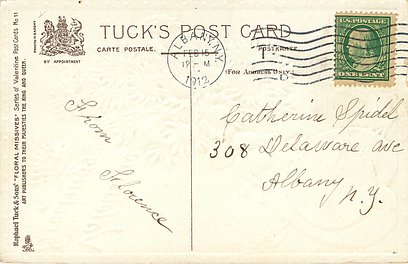 TUCK'S POST CARD
CARTE POSTALE.
POSTKARTE.
(FOR ADDRESS ONLY.)
BY APPOINTMENT
ALBANY, N.Y.
FEB 15
12-M
1912
U.S. POSTAGE
ONE CENT
Raphael Tuck & Sons' "FLORAL MISSIVES" Series of Valentine Post Cards No 11
ART PUBLISHERS TO THEIR MAJESTIES THE KING AND QUEEN.
From
Florence
Catherine Spidel
308 Delaware Ave
Albany
N.Y.